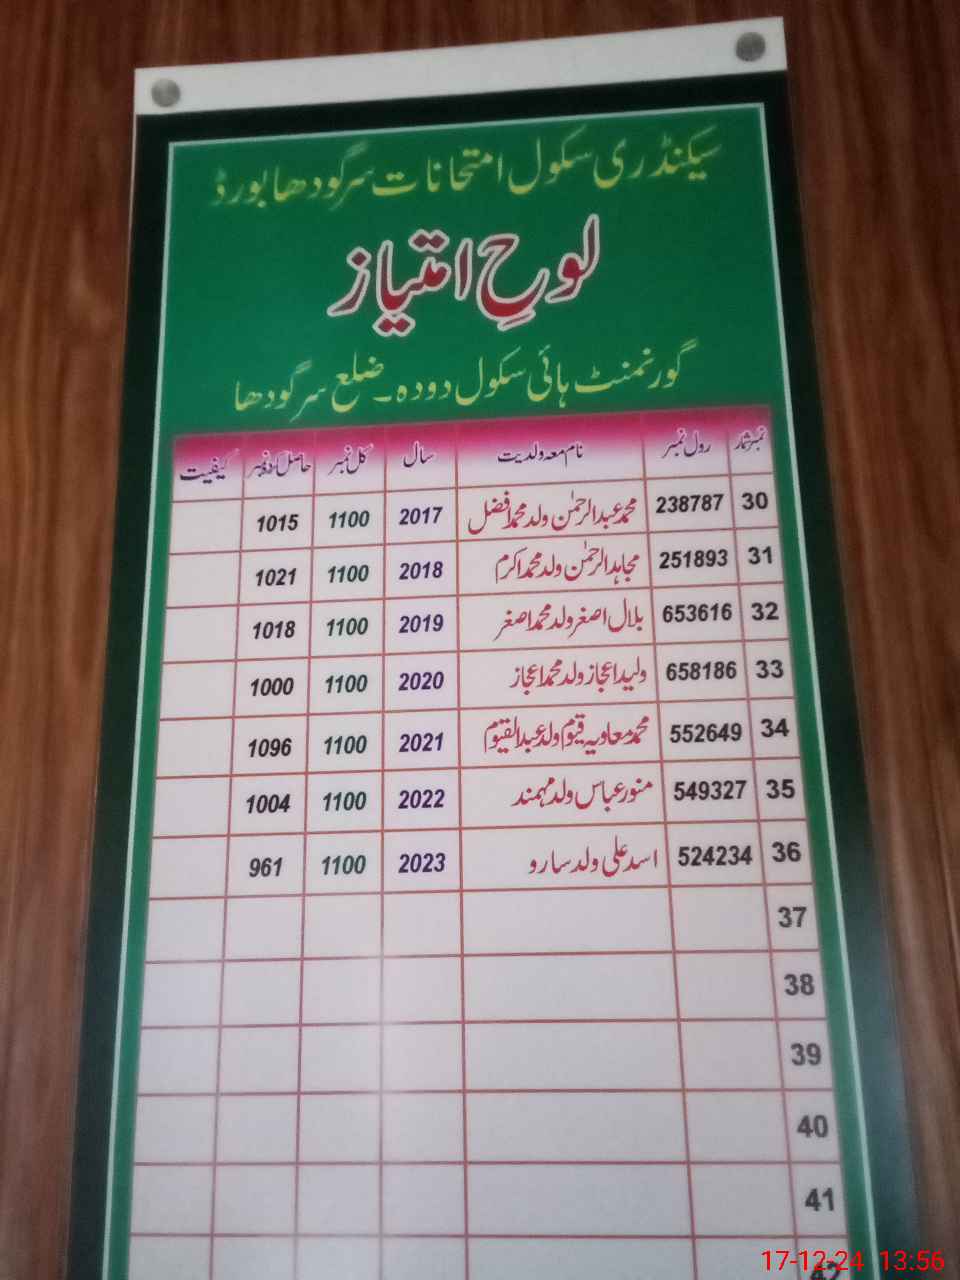 سیکنڈری سکول امتحانات سرگودھا بورڈ
لوحِ امتیاز
گورنمنٹ ہائی سکول دودہ۔ ضلع سرگودھا
نمبر شمار رول نمبر نام معہ ولدیت سال کل نمبر حاصل کردہ نمبر کیفیت
30 238787 محمد عبدالرحمٰن ولد محمد افضل 2017 1100 1015
31 251893 مجاہد الرحمٰن ولد محمد اکرم 2018 1100 1021
32 653616 بلال اصغر ولد محمد اصغر 2019 1100 1018
33 658186 ولید اعجاز ولد محمد اعجاز 2020 1100 1000
34 552649 محمد معاویہ قیوم ولد عبدالقیوم 2021 1100 1096
35 549327 منور عباس ولد مہمند 2022 1100 1004
36 524234 اسد علی ولد سارو 2023 1100 961
37
38
39
40
41
17-12-24 13:56